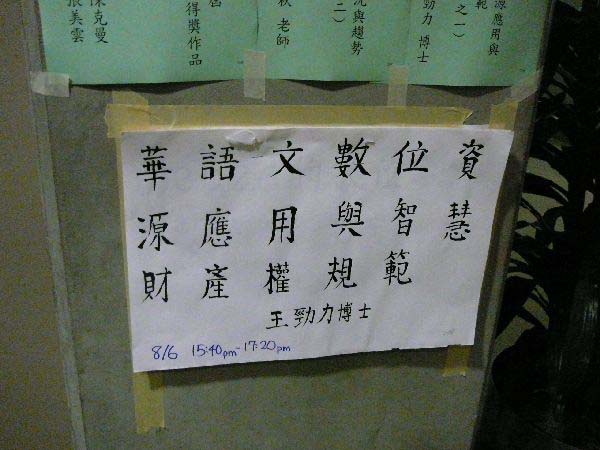 源應用與
範
之一）
勁力 博士
況與趨勢
二）
秋 老師
得獎作品
陳克曼
張美雲
華語文數位資
源應用與智慧
財產權規範
王勁力博士
8/6 15:40pm-17:20pm